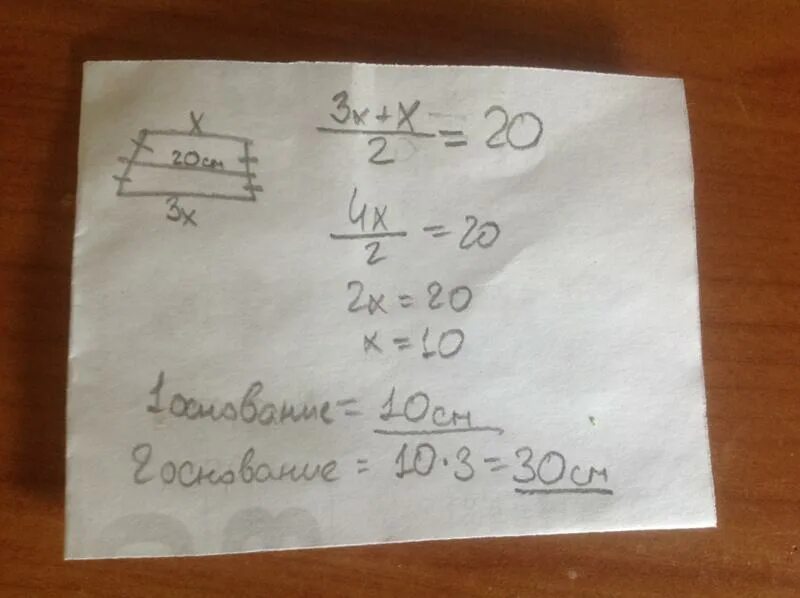 x
20см
3x
3x+x/2 = 20
4x/2 = 20
2x = 20
x = 10
1 основание = 10 см
2 основание = 10·3 = 30 см